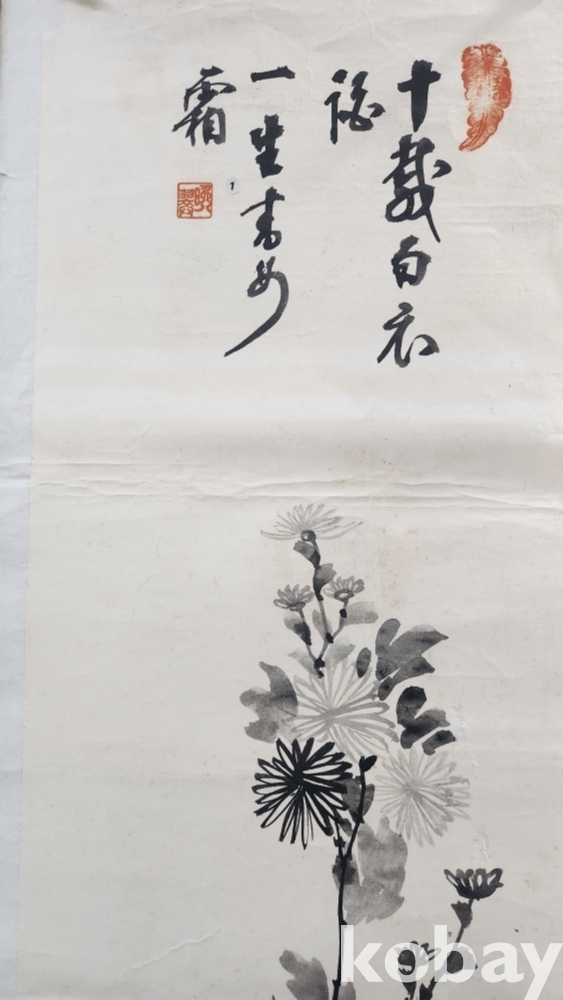 千載白衣
酒
一生青女
霜
1
kobay